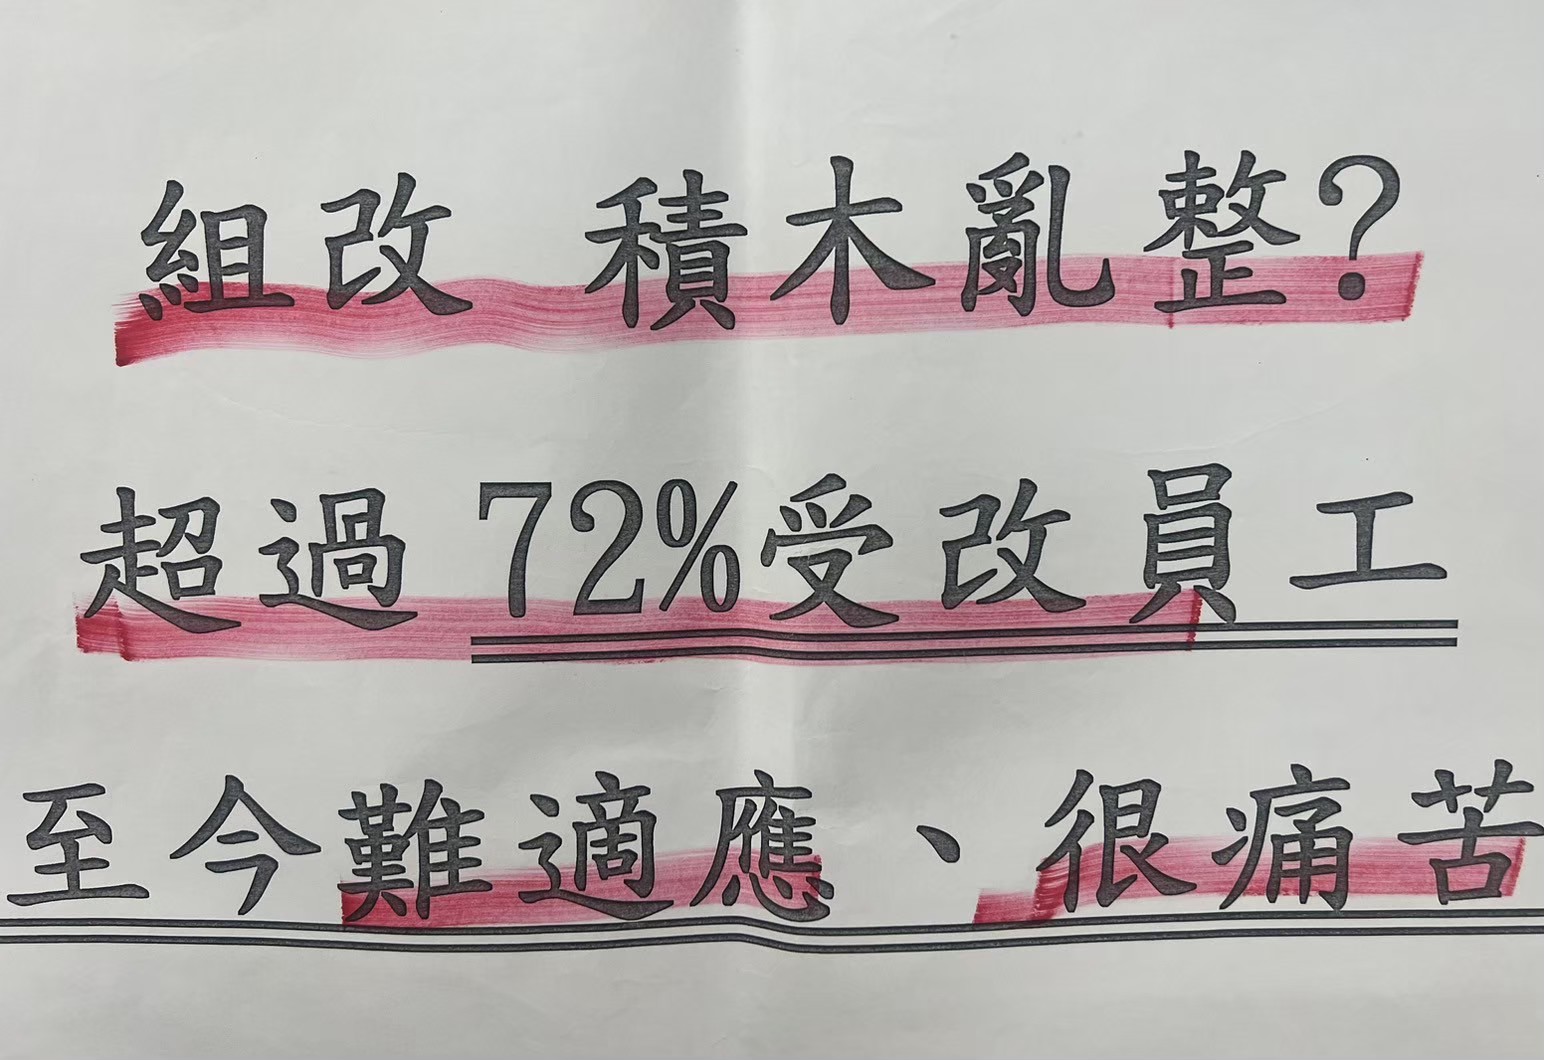 組改 積木亂整?
超過72%受改員工
至今難適應、很痛苦